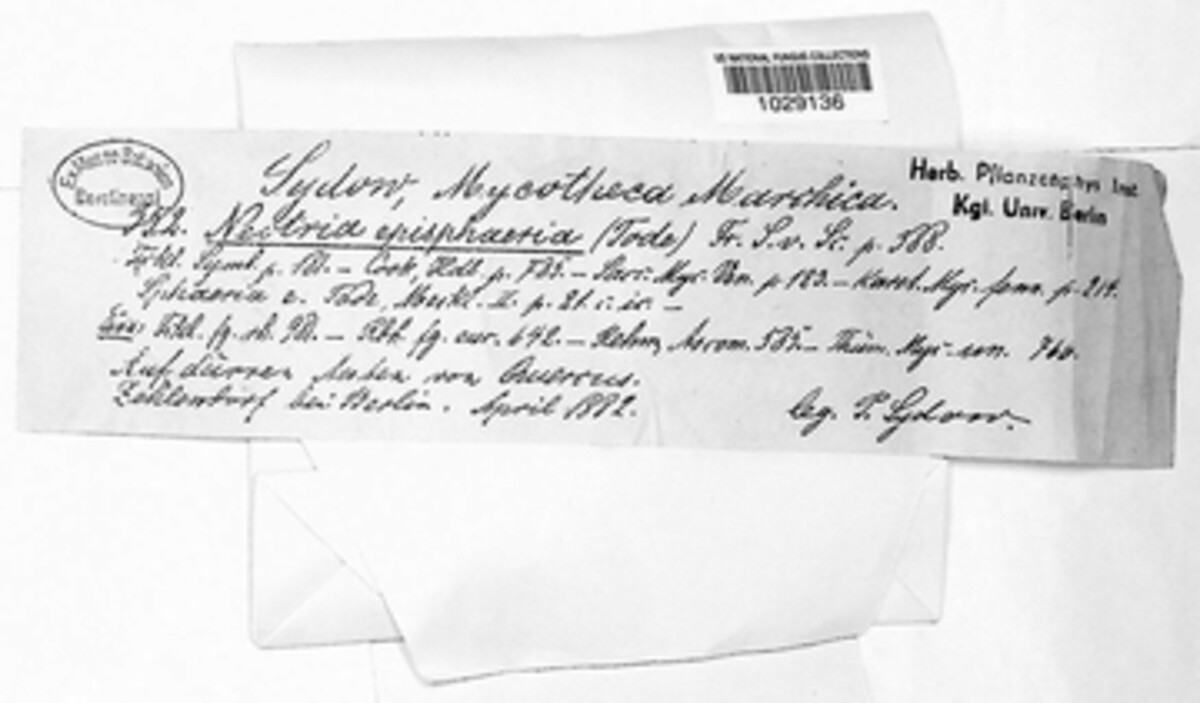 US NATIONAL FUNGUS COLLECTIONS
1029136
Herb. Pflanzenphys Inst.
Kgl. Univ. Berlin
Sydow, Mycotheca Marchica.
Nectria episphaeria (Tode) Fr. S. v. Sc. p. 388.
Fckl. Symb. p. – Cook, Hdb. p. – Sacc. Myc. Ven. p. 123. – Karst. Myc. fenn. p. 214.
Sphaeria e. Tode, Meckl. II. p. 21. –
Exs: Fckl. fg. rh. – Rbh. fg. eur. 642. – Rehm, Ascom. – Thüm. Myc. un. 760.
Auf dürren Aesten von Quercus.
Zehlendorf bei Berlin. April 1882.
leg. P. Sydow.